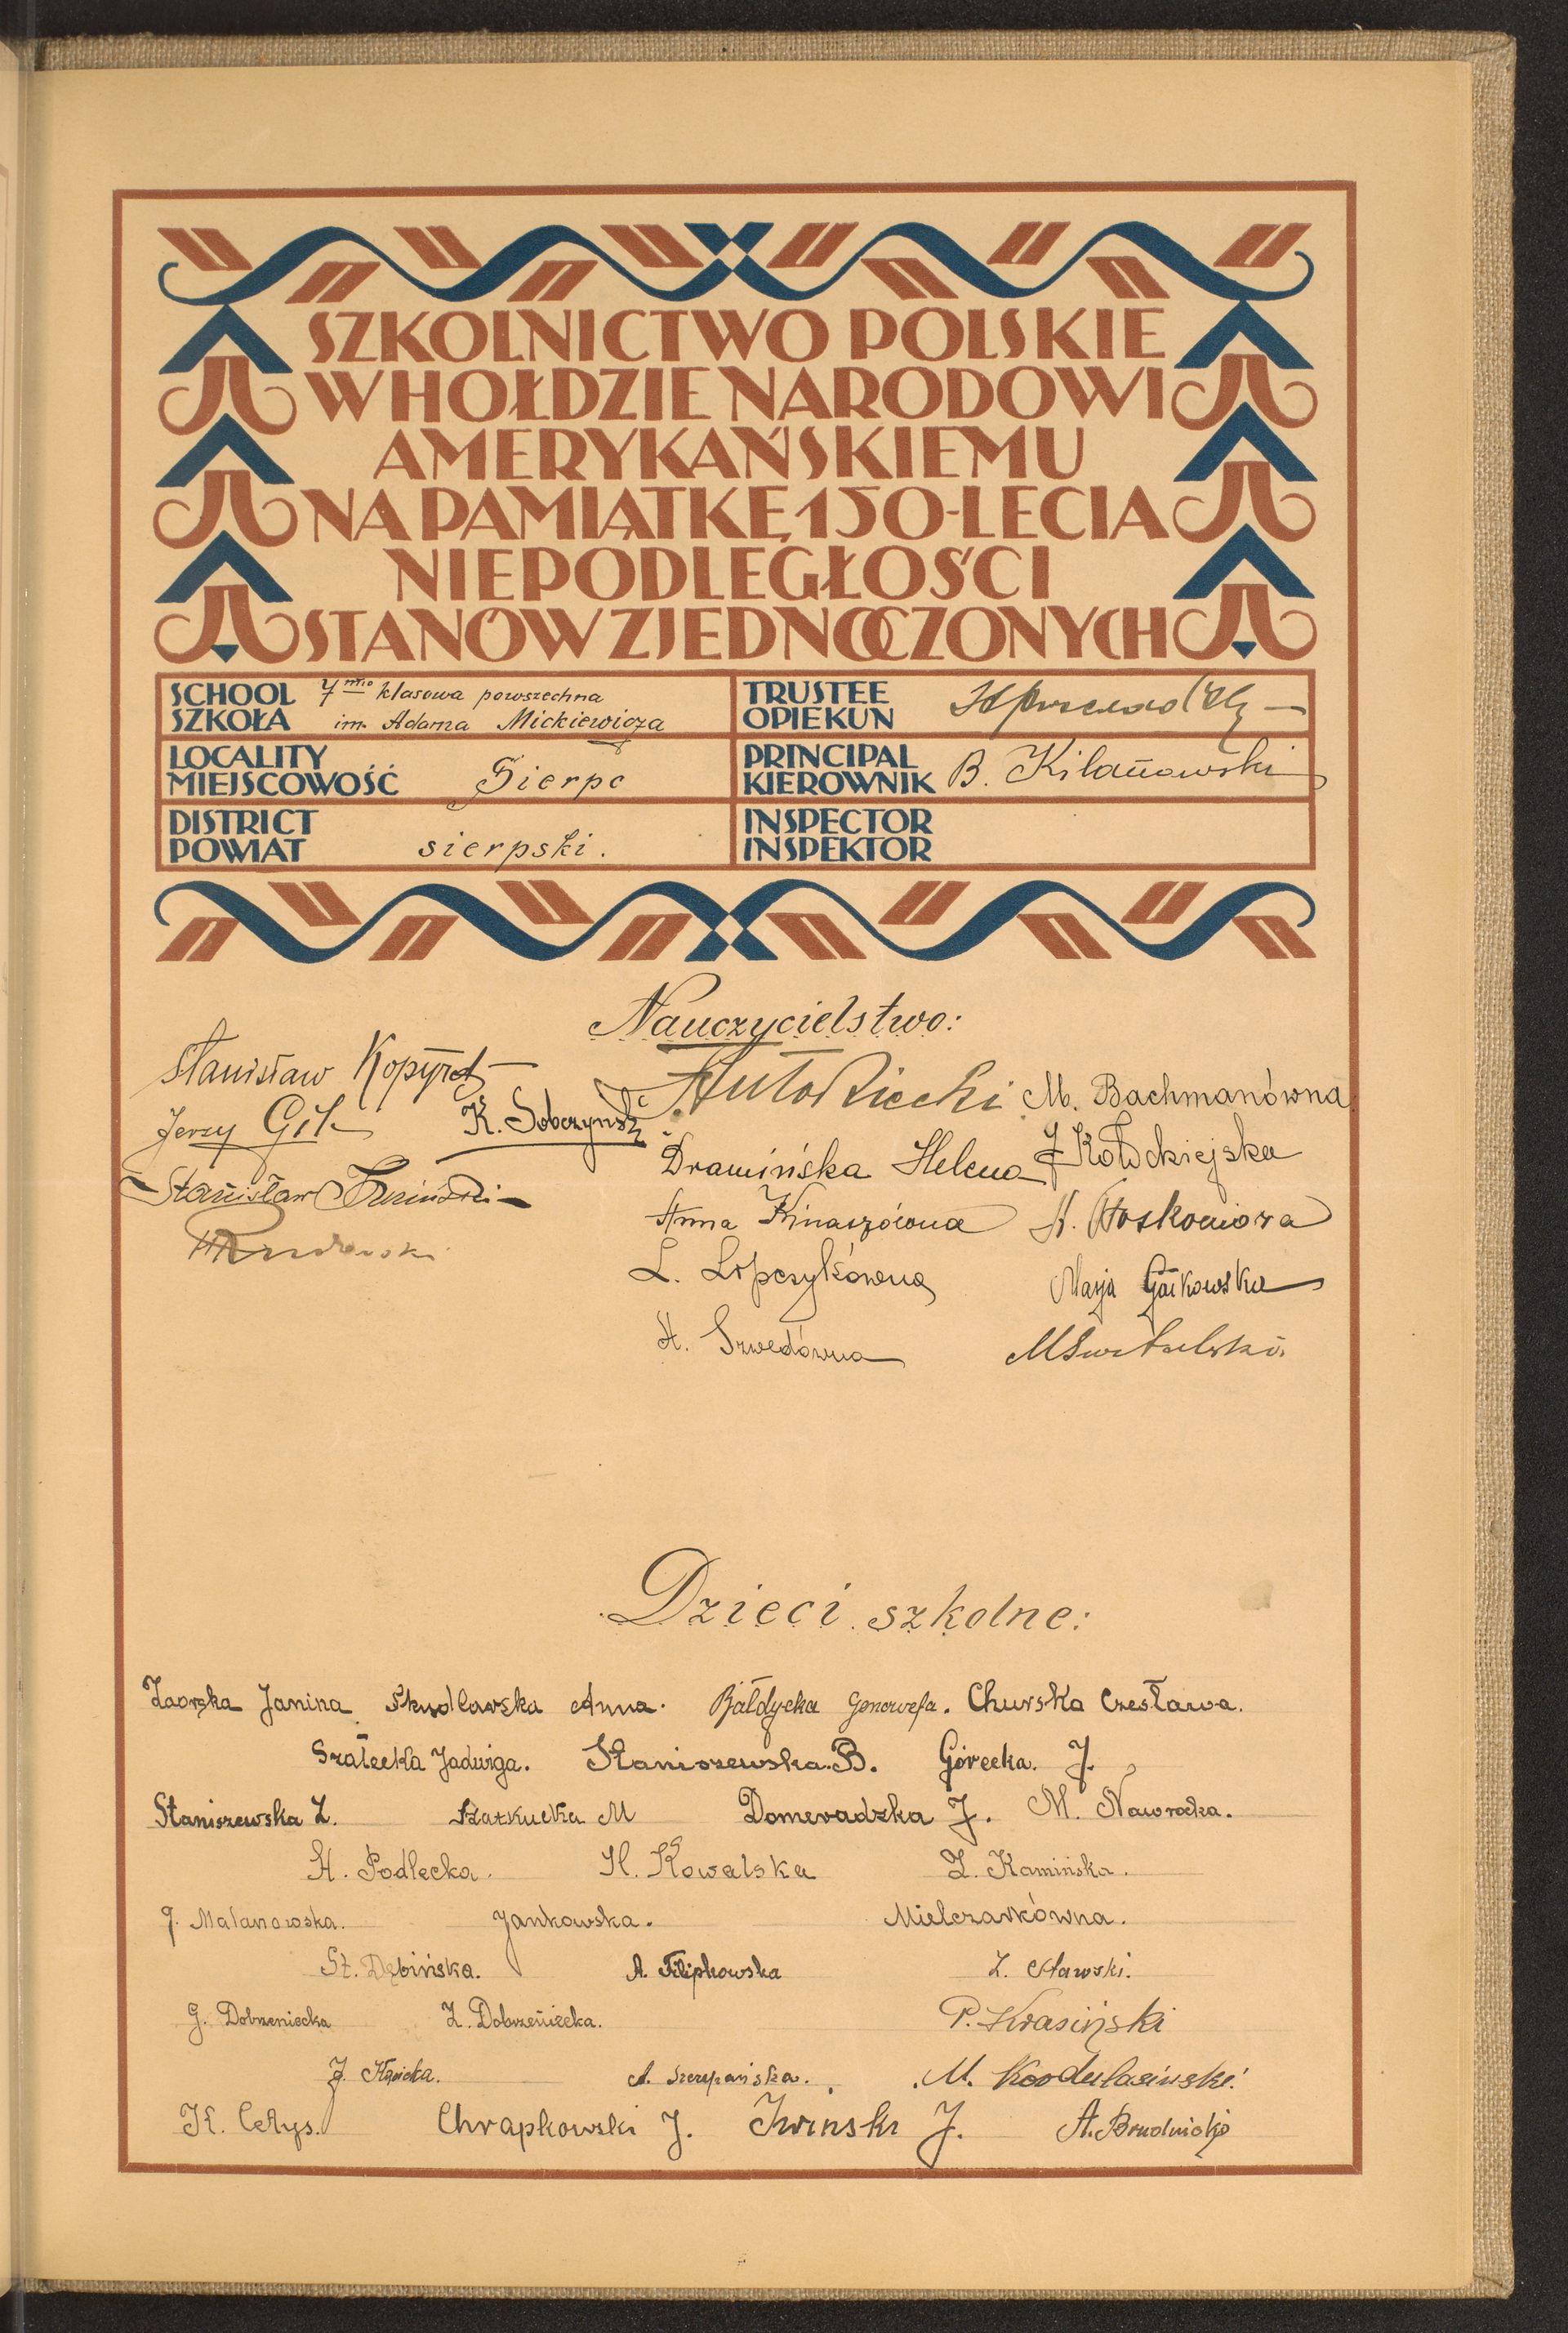 SZKOLNICTWO POLSKIE
W HOŁDZIE NARODOWI
AMERYKAŃSKIEMU
NA PAMIĄTKĘ 150-LECIA
NIEPODLEGŁOŚCI
STANÓW ZJEDNOCZONYCH
SCHOOL
SZKOŁA
7mio klasowa powszechna
im. Adama Mickiewicza
TRUSTEE
OPIEKUN
LOCALITY
MIEJSCOWOŚĆ
Sierpc
PRINCIPAL
KIEROWNIK
B. Kilanowski
DISTRICT
POWIAT
sierpski.
INSPECTOR
INSPEKTOR
Nauczycielstwo:
Stanisław Kopyrd
M. Bachmanówna
Jerzy Gil
K. Sobczyński
Dramińska Helena
Stanisław
Anna Kinaszówna
L. Łopczykówna
Marja Gałkowska
H. Szwedówna
Dzieci szkolne:
Zaorska Janina Skudlarska Anna. Bałdycka Genowefa. Churska Czesława.
Szałecka Jadwiga. Staniszewska B. Górecka. J.
Staniszewska Z. M Domeradzka J. M. Nawrocka.
H. Podlecka. H. Kowalska Z. Kamińska.
J. Malanowska. Jankowska. Mielczarkówna.
St. Dębińska. A. Filipkowska Z. Sławski.
G. Dobrzeniecka Z. Dobrzeniecka. P. Krasiński
J. A. Szczepańska. M.
K. Celys. Chrapkowski J. J. A. Brudnicki